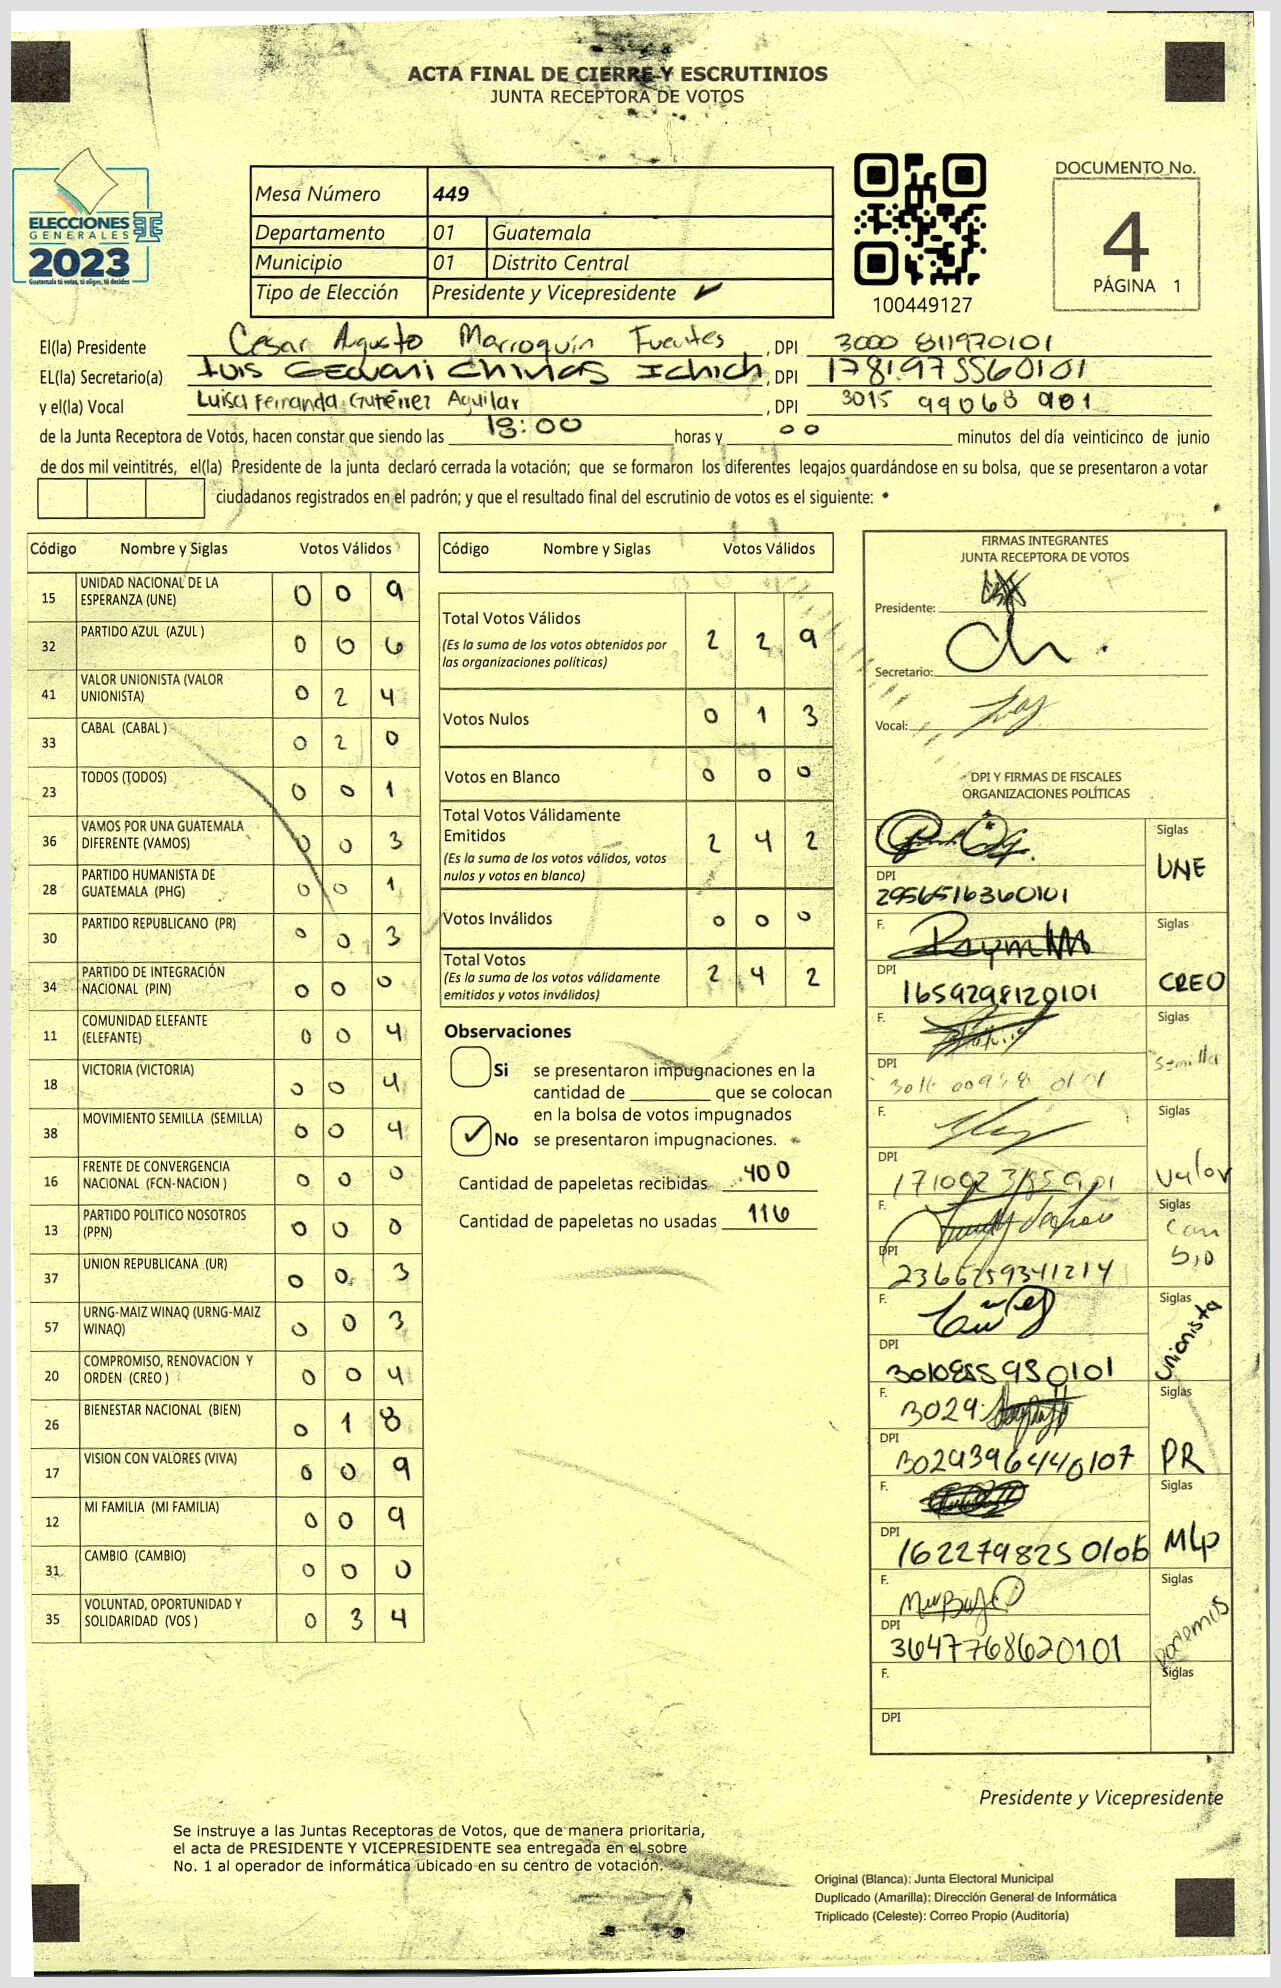 ACTA FINAL DE CIERRE Y ESCRUTINIOS
JUNTA RECEPTORA DE VOTOS
ELECCIONES
GENERALES
2023
Guatemala tú votas, tú eliges, tú decides
Mesa Número 449
Departamento 01 Guatemala
Municipio 01 Distrito Central
Tipo de Elección Presidente y Vicepresidente ✓
100449127
DOCUMENTO No.
4
PÁGINA 1
El(la) Presidente Cesar Agusto Marroquin Fuentes, DPI 3000 811970101
EL(la) Secretario(a) Luis Geovani Chivas Ichich, DPI 1781973560101
y el(la) Vocal Luisa Fernanda Gutiérrez Aguilar, DPI 3015 99068 901
de la Junta Receptora de Votos, hacen constar que siendo las 18:00 horas y 00 minutos del día veinticinco de junio
de dos mil veintitrés, el(la) Presidente de la junta declaró cerrada la votación; que se formaron los diferentes legajos guardándose en su bolsa, que se presentaron a votar
ciudadanos registrados en el padrón; y que el resultado final del escrutinio de votos es el siguiente:
Código Nombre y Siglas Votos Válidos
15 UNIDAD NACIONAL DE LA ESPERANZA (UNE) 0 0 9
32 PARTIDO AZUL (AZUL ) 0 0 6
41 VALOR UNIONISTA (VALOR UNIONISTA) 0 2 4
33 CABAL (CABAL ) 0 2 0
23 TODOS (TODOS) 0 0 1
36 VAMOS POR UNA GUATEMALA DIFERENTE (VAMOS) 0 0 3
28 PARTIDO HUMANISTA DE GUATEMALA (PHG) 0 0 1
30 PARTIDO REPUBLICANO (PR) 0 0 3
34 PARTIDO DE INTEGRACIÓN NACIONAL (PIN) 0 0 0
11 COMUNIDAD ELEFANTE (ELEFANTE) 0 0 4
18 VICTORIA (VICTORIA) 0 0 4
38 MOVIMIENTO SEMILLA (SEMILLA) 0 0 4
16 FRENTE DE CONVERGENCIA NACIONAL (FCN-NACION ) 0 0 0
13 PARTIDO POLITICO NOSOTROS (PPN) 0 0 0
37 UNION REPUBLICANA (UR) 0 0 3
57 URNG-MAIZ WINAQ (URNG-MAIZ WINAQ) 0 0 3
20 COMPROMISO, RENOVACION Y ORDEN (CREO ) 0 0 4
26 BIENESTAR NACIONAL (BIEN) 0 1 8
17 VISION CON VALORES (VIVA) 0 0 9
12 MI FAMILIA (MI FAMILIA) 0 0 9
31 CAMBIO (CAMBIO) 0 0 0
35 VOLUNTAD, OPORTUNIDAD Y SOLIDARIDAD (VOS ) 0 3 4
Código Nombre y Siglas Votos Válidos
Total Votos Válidos 2 2 9
(Es la suma de los votos obtenidos por
las organizaciones políticas)
Votos Nulos 0 1 3
Votos en Blanco 0 0 0
Total Votos Válidamente
Emitidos 2 4 2
(Es la suma de los votos válidos, votos
nulos y votos en blanco)
Votos Inválidos 0 0 0
Total Votos 2 4 2
(Es la suma de los votos válidamente
emitidos y votos inválidos)
Observaciones
Si se presentaron impugnaciones en la
cantidad de ________ que se colocan
en la bolsa de votos impugnados
✓ No se presentaron impugnaciones.
Cantidad de papeletas recibidas 400
Cantidad de papeletas no usadas 116
FIRMAS INTEGRANTES
JUNTA RECEPTORA DE VOTOS
Presidente:
Secretario:
Vocal:
DPI Y FIRMAS DE FISCALES
ORGANIZACIONES POLÍTICAS
Siglas UNE
DPI 2956516360101
F. Siglas CREO
DPI 1659298120101
F. Siglas Semilla
DPI
F. Siglas Valor
DPI
F. Siglas Cambio
DPI 2366759341214
F. Siglas Unionista
DPI
F. 3029 Siglas PR
DPI 3029396440107
F. Siglas MLP
DPI 162279825 0106
F. Siglas Podemos
DPI 3647768620101
F. Siglas
DPI
Presidente y Vicepresidente
Se instruye a las Juntas Receptoras de Votos, que de manera prioritaria,
el acta de PRESIDENTE Y VICEPRESIDENTE sea entregada en el sobre
No. 1 al operador de informática ubicado en su centro de votación.
Original (Blanca): Junta Electoral Municipal
Duplicado (Amarilla): Dirección General de Informática
Triplicado (Celeste): Correo Propio (Auditoría)